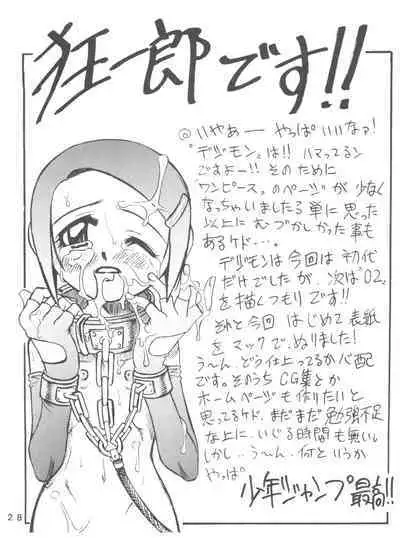 狂一郎です!!
@いやぁー やっぱいいなァ!
"デジモン"は!! ハマってるン
ですよー!! そのために
"ワンピース"のページが少なく
なっちゃいましたる 単に思った
以上にむづかしかった事も
あるケド…。
デジモンは今回は初代
だけでしたが、次は"02"
を描くつもりです!!
それと今回はじめて表紙
をマックで、ぬりました!
う〜ん、どう仕上ってるか心配
です。そのうちCG集とか
ホームページも作りたいと
思ってるケド、まだまだ勉強不足
な上に、いじる時間も無いし
しかし…う〜ん、何というか
やっぱ
少年ジャンプ最高!!
28